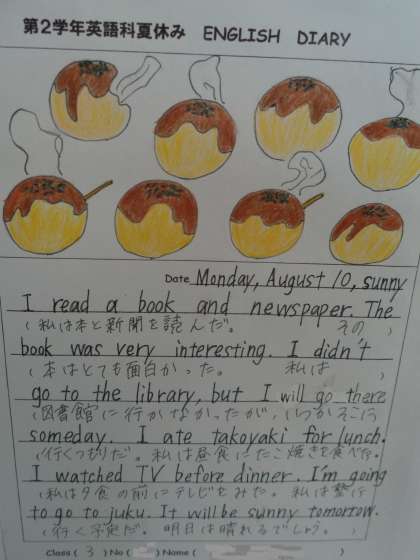 第2学年英語科夏休み ENGLISH DIARY
Date Monday, August 10, sunny
I read a book and newspaper. The
(私は本と新聞を読んだ。 その )
book was very interesting. I didn't
(本はとても面白かった。 私は )
go to the library, but I will go there
(図書館に行かなかったが、いつかそこに
someday. I ate takoyaki for lunch.
(行くつもりだ。私は昼食にたこ焼きを食べた。
I watched TV before dinner. I'm going
(私は夕食の前にテレビをみた。私は塾に
to go to juku. It will be sunny tomorrow.
(行く予定だ。明日は晴れるでしょう。 )
Class ( 3 ) No ( ) Name ( )